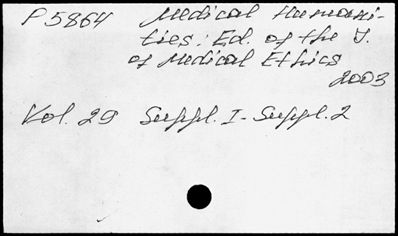 P5864 Medical Humani-
ties: Ed. of the J.
of Medical Ethics
2003
Vol. 29 Suppl. I-Suppl. 2